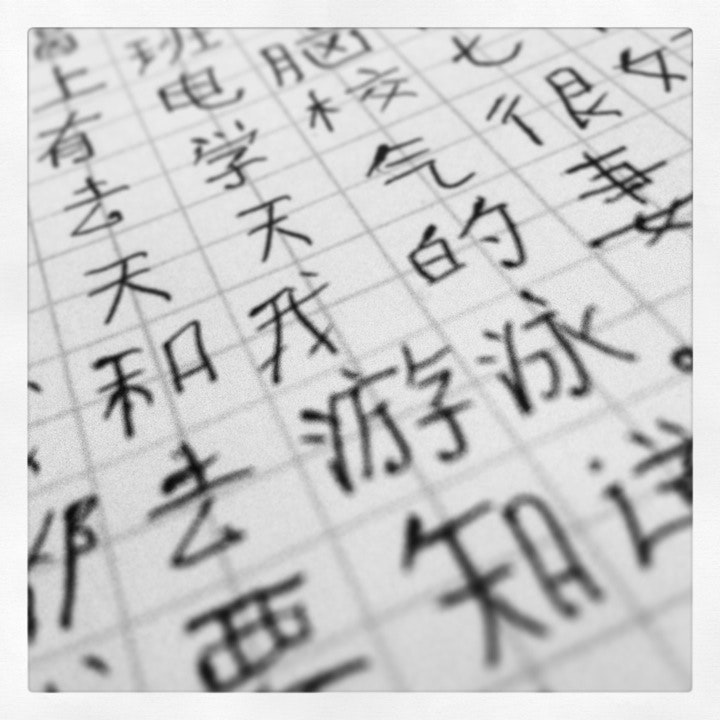 上班
有电脑
去学校七
天天气很好
和我的
去游泳。
要知道